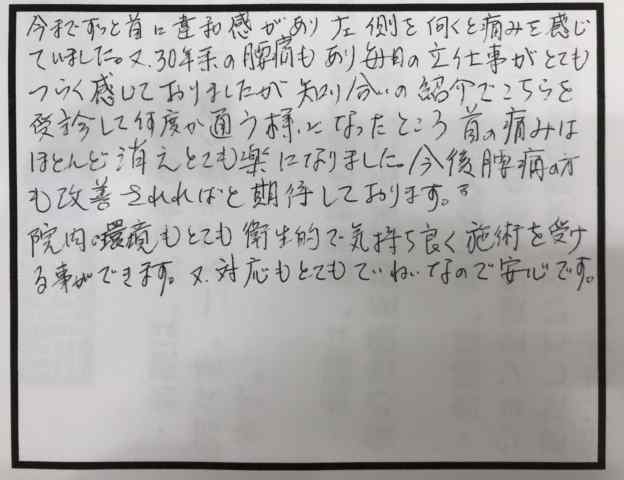 今までずっと首に違和感があり左側を向くと痛みを感じ
ていました。又、30年来の腰痛もあり毎日の立仕事がとても
つらく感じておりましたが知り合いの紹介でこちらを
受診して何度か通う様になったところ首の痛みは
ほとんど消えとても楽になりました。今後腰痛の方
も改善されればと期待しております。
院内の環境もとても衛生的で気持ち良く施術を受け
る事ができます。又、対応もとてもていねいなので安心です。